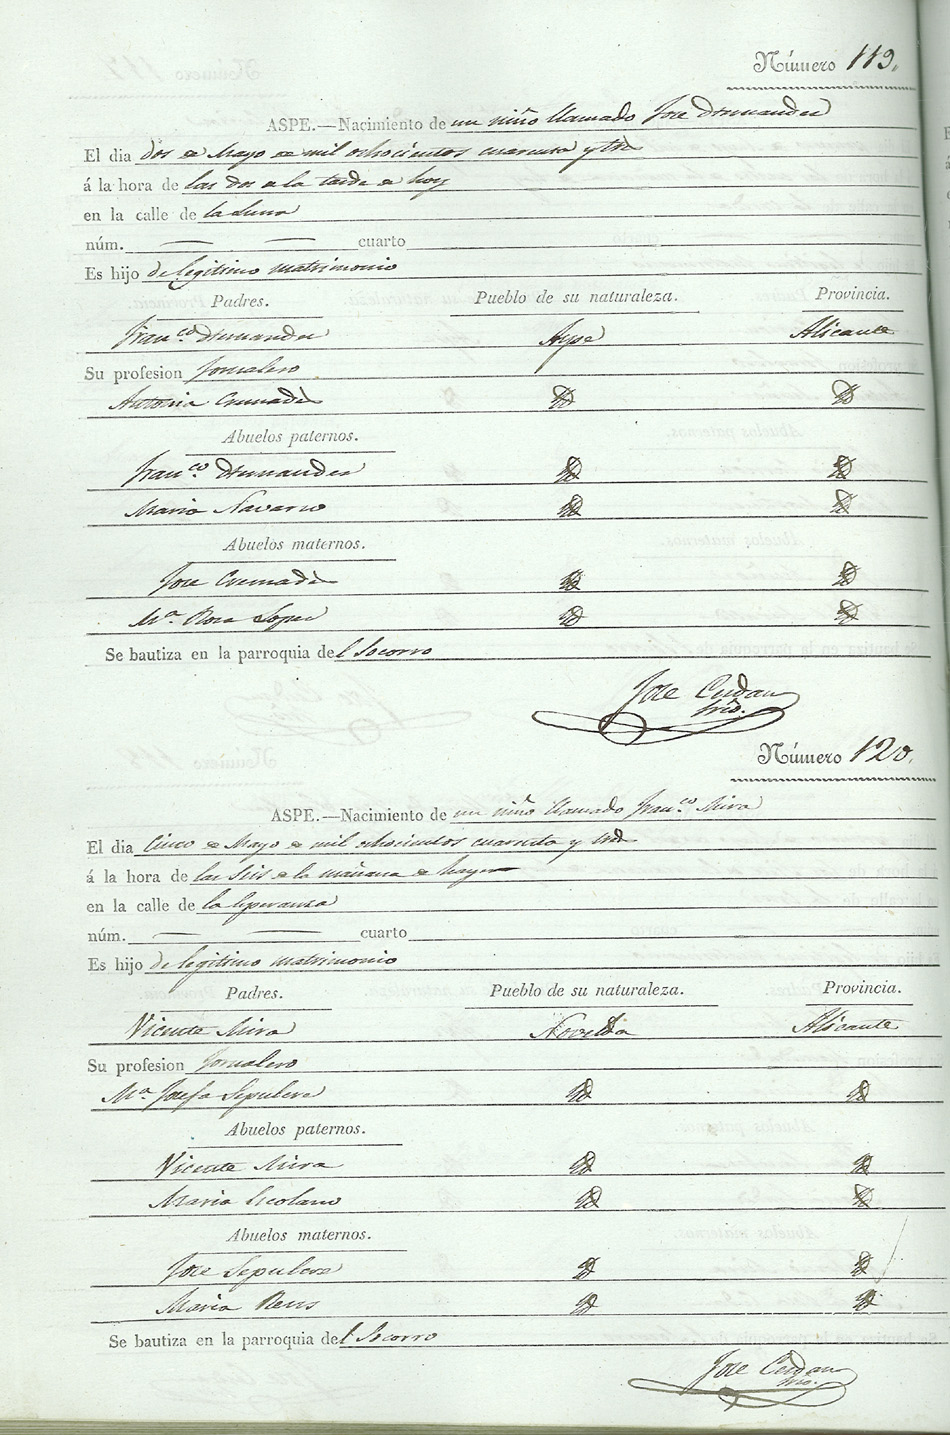 Número 119.
ASPE.—Nacimiento de un niño llamado Jose Hernandez
El dia dos de Mayo de mil ochocientos cuarenta y tres
á la hora de las dos de la tarde de hoy
en la calle de la Luna
núm. — — cuarto
Es hijo de legitimo matrimonio
Padres. Pueblo de su naturaleza. Provincia.
Franco. Hernandez Aspe Alicante
Su profesion Jornalero
Antonia Cremades Id Id
Abuelos paternos.
Franco. Hernandez Id Id
Maria Navarro Id Id
Abuelos maternos.
Jose Cremades Id Id
Ma. Rosa Lopez Id Id
Se bautiza en la parroquia del Socorro
Jose Cerdan
srio.
Número 120.
ASPE.—Nacimiento de un niño llamado Franco. Mira
El dia Cinco de Mayo de mil ochocientos cuarenta y tres
á la hora de las seis de la mañana de hayer
en la calle de la Esperanza
núm. — — cuarto
Es hijo de legitimo matrimonio
Padres. Pueblo de su naturaleza. Provincia.
Vicente Mira Novelda Alicante
Su profesion Jornalero
Ma. Josefa Sepulcre Id Id
Abuelos paternos.
Vicente Mira Id Id
Maria Escolano Id Id
Abuelos maternos.
Jose Sepulcre Id Id
Maria Reus Id Id
Se bautiza en la parroquia del Socorro
Jose Cerdan
srio.